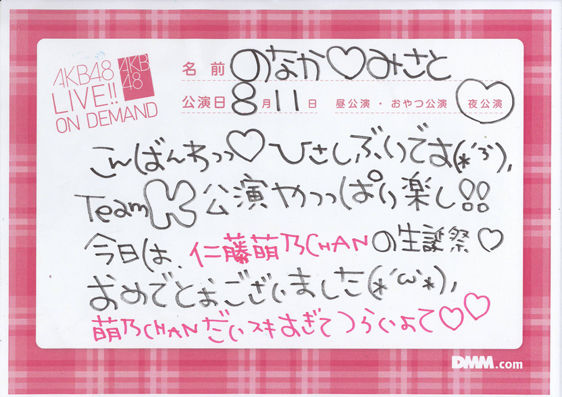 AKB48
LIVE!!
ON DEMAND
AKB
48
名前 のなか♡みさと
公演日 8月11日 昼公演・おやつ公演 夜公演
こんばんわっっ♡ひさしぶりです(*´3`),
TeamK公演やっっぱり楽し!!
今日は、仁藤萌乃CHANの生誕祭♡
おめでとぉございました(*´ω`*),
萌乃CHANだいスキすぎてつらいよて♡♡
DMM.com